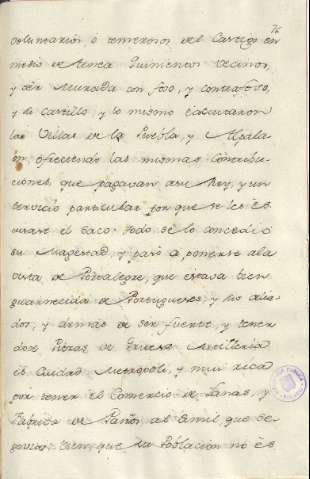 76
voluntarios o temerosos del Castigo en
medio de tener Quinientos Vecinos,
y con Murada con foso, y contrafoso,
y de Castillo, y lo mismo executaron
las Villas de la Puebla, y Alpala-
on, ofreciendo las mismas Contribu-
ciones que pagavan a su Rey, y un
servicio particular por que se les es-
cusase el saco. todo se lo concedió
su Magestad, y pasó a ponerse a la
vista de Portalegre, que estava bien
guarnecida de Portugueses, y sus alia-
dos, y demas de ser fuerte, y tener
doze Piezas de Gruesa Artilleria
es Ciudad y mui rica
por tener el Comercio de Lanas, y
Fabrica de Paños, al Emil que se-
que la Poblacion no es